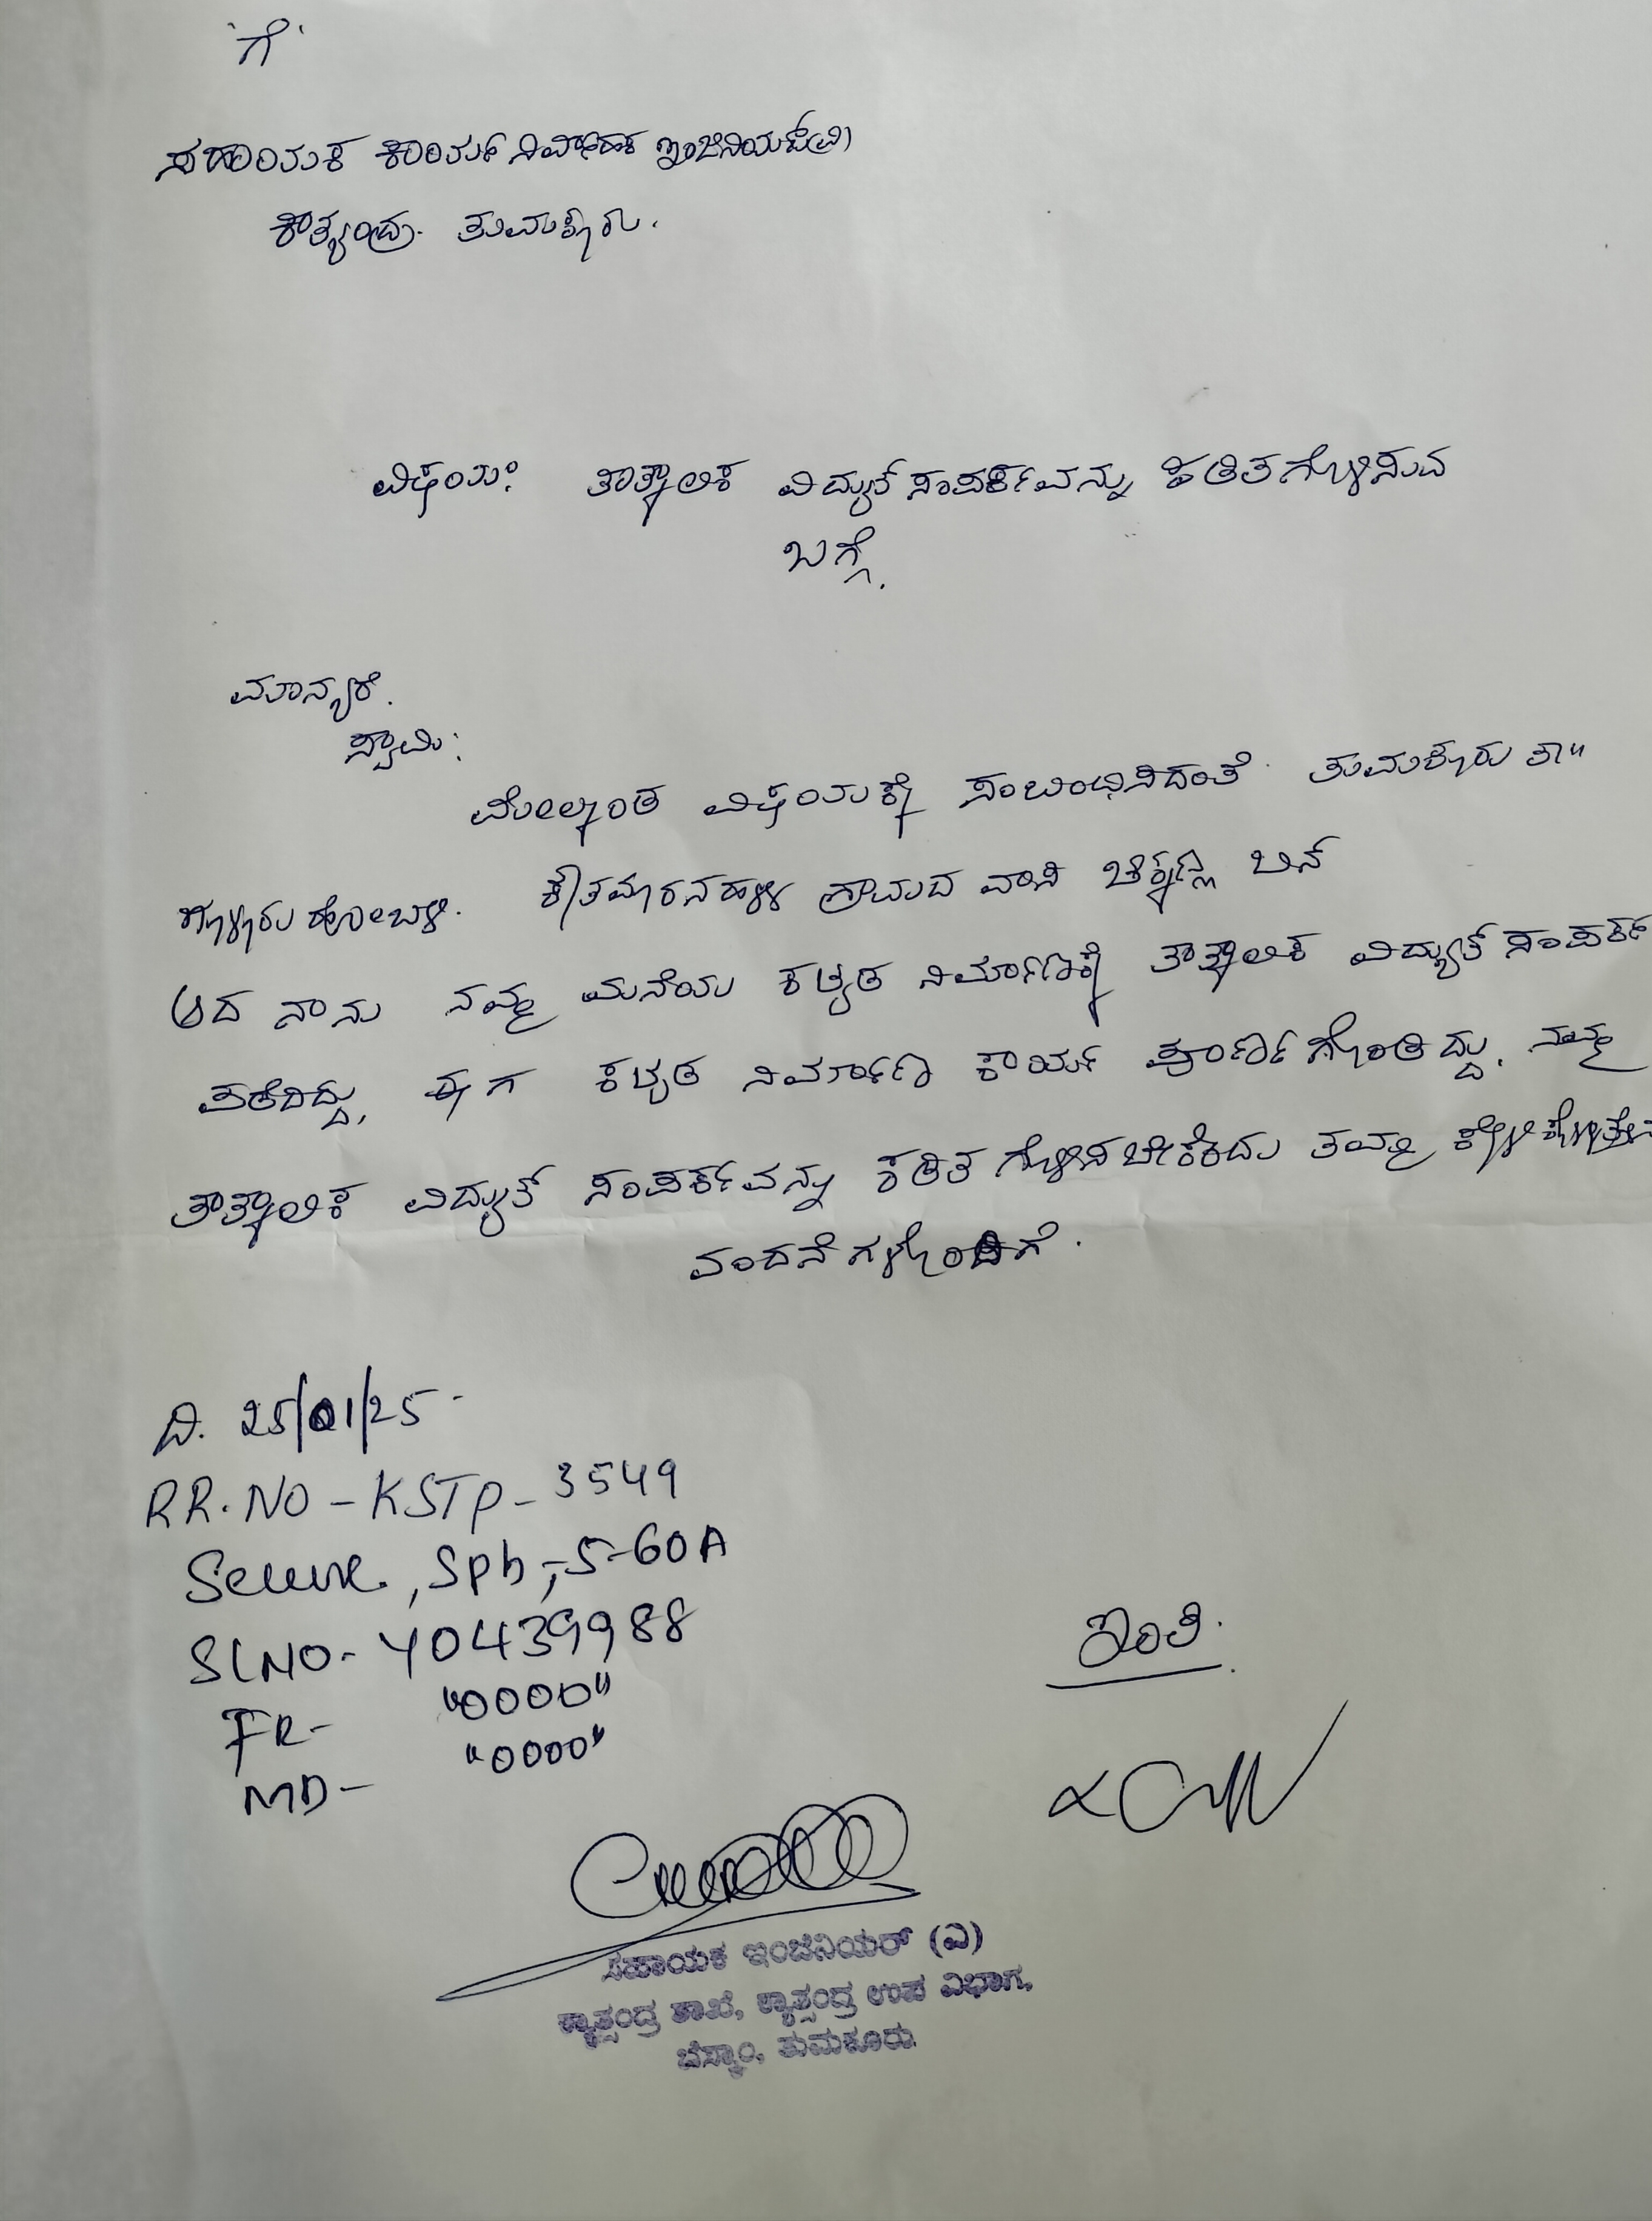 'ಗೆ'
ಸಹಾಯಕ ಕಾರ್ಯ ನಿರ್ವಾಹಕ ಇಂಜಿನಿಯರ್(ವಿ)
ಕ್ಯಾತ್ಸಂದ್ರ. ತುಮಕೂರು.
ವಿಷಯ: ತಾತ್ಕಾಲಿಕ ವಿದ್ಯುತ್ ಸಂಪರ್ಕವನ್ನು ಕಡಿತಗೊಳಿಸುವ
ಬಗ್ಗೆ.
ಮಾನ್ಯರೆ.
ಸ್ವಾಮಿ:
ಮೇಲ್ಕಂಡ ವಿಷಯಕ್ಕೆ ಸಂಬಂಧಿಸಿದಂತೆ ತುಮಕೂರು ತಾ"
ಗೂಳೂರು ಹೋಬಳಿ. ಗ್ರಾಮದ ವಾಸಿ ಬಿನ್
ಆದ ನಾನು ನಮ್ಮ ಮನೆಯ ಕಟ್ಟಡ ನಿರ್ಮಾಣಕ್ಕೆ ತಾತ್ಕಾಲಿಕ ವಿದ್ಯುತ್ ಸಂಪರ್ಕ
ಪಡೆದಿದ್ದು, ಈಗ ಕಟ್ಟಡ ನಿರ್ಮಾಣ ಕಾರ್ಯ ಪೂರ್ಣಗೊಂಡಿದ್ದು. ನಮ್ಮ
ತಾತ್ಕಾಲಿಕ ವಿದ್ಯುತ್ ಸಂಪರ್ಕವನ್ನು ಕಡಿತಗೊಳಿಸಬೇಕೆಂದು ತಮ್ಮಲ್ಲಿ
ವಂದನೆಗಳೊಂದಿಗೆ.
ದಿ. 25/01/25
RR.NO-KSTP-3549
Secure, Sph, 5-60A
SLNO- Y0439988
FR- "0000"
MD- "0000"
ಸಹಾಯಕ ಇಂಜಿನಿಯರ್ (ವಿ)
ಕ್ಯಾತ್ಸಂದ್ರ ಶಾಖೆ, ಕ್ಯಾತ್ಸಂದ್ರ ಉಪ ವಿಭಾಗ,
ಬೆಸ್ಕಾಂ, ತುಮಕೂರು.